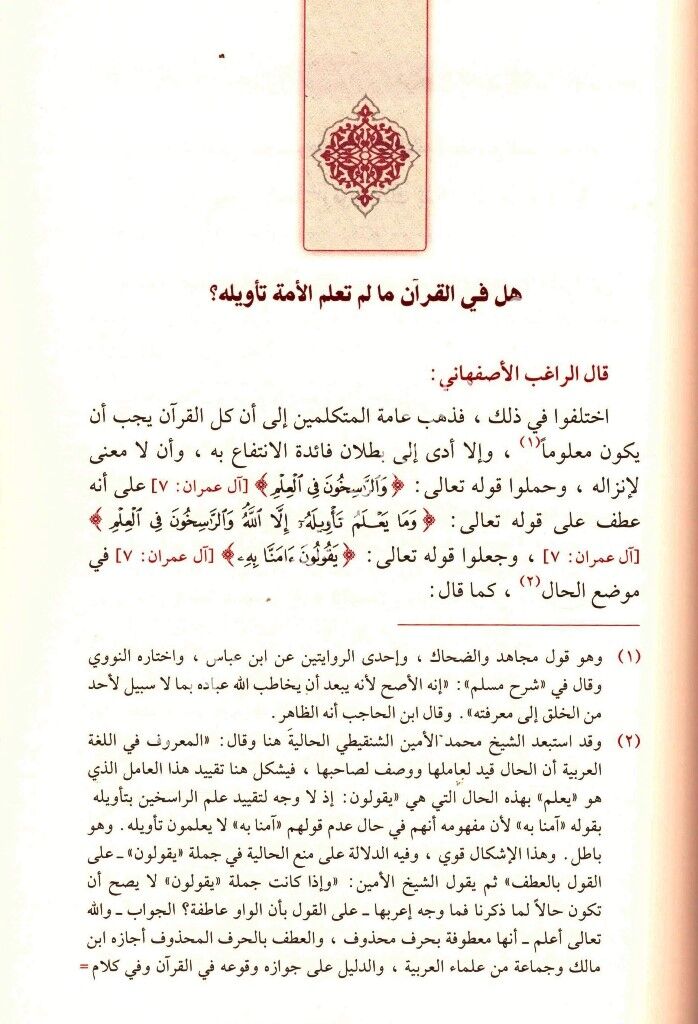 هل في القرآن ما لم تعلم الأمة تأويله؟
قال الراغب الأصفهاني:
اختلفوا في ذلك ، فذهب عامة المتكلمين إلى أن كل القرآن يجب أن
يكون معلوماً(١) ، وإلا أدى إلى بطلان فائدة الانتفاع به ، وأن لا معنى
لإنزاله ، وحملوا قوله تعالى: ﴿وَالرَّاسِخُونَ فِي الْعِلْمِ﴾ [آل عمران: ٧] على أنه
عطف على قوله تعالى: ﴿وَمَا يَعْلَمُ تَأْوِيلَهُۥٓ إِلَّا اللَّهُ وَالرَّاسِخُونَ فِي الْعِلْمِ﴾
[آل عمران: ٧] ، وجعلوا قوله تعالى: ﴿يَقُولُونَ ءَامَنَّا بِهِۦ﴾ [آل عمران: ٧] في
موضع الحال(٢) ، كما قال:
(١) وهو قول مجاهد والضحاك ، وإحدى الروايتين عن ابن عباس ، واختاره النووي
وقال في «شرح مسلم»: «إنه الأصح لأنه يبعد أن يخاطب الله عباده بما لا سبيل لأحد
من الخلق إلى معرفته». وقال ابن الحاجب أنه الظاهر.
(٢) وقد استبعد الشيخ محمد الأمين الشنقيطي الحالية هنا وقال: «المعروف في اللغة
العربية أن الحال قيد لعاملها ووصف لصاحبها ، فيشكل هنا تقييد هذا العامل الذي
هو «يعلم» بهذه الحال التي هي «يقولون: إذ لا وجه لتقييد علم الراسخين بتأويله
بقوله «آمنا به» لأن مفهومه أنهم في حال عدم قولهم «آمنا به» لا يعلمون تأويله. وهو
باطل. وهذا الإشكال قوي ، وفيه الدلالة على منع الحالية في جملة «يقولون» ـ على
القول بالعطف» ثم يقول الشيخ الأمين: «وإذا كانت جملة «يقولون» لا يصح أن
تكون حالاً لما ذكرنا فما وجه إعربها ـ على القول بأن الواو عاطفة؟ الجواب ـ والله
تعالى أعلم ـ أنها معطوفة بحرف محذوف ، والعطف بالحرف المحذوف أجازه ابن
مالك وجماعة من علماء العربية ، والدليل على جوازه وقوعه في القرآن وفي كلام =